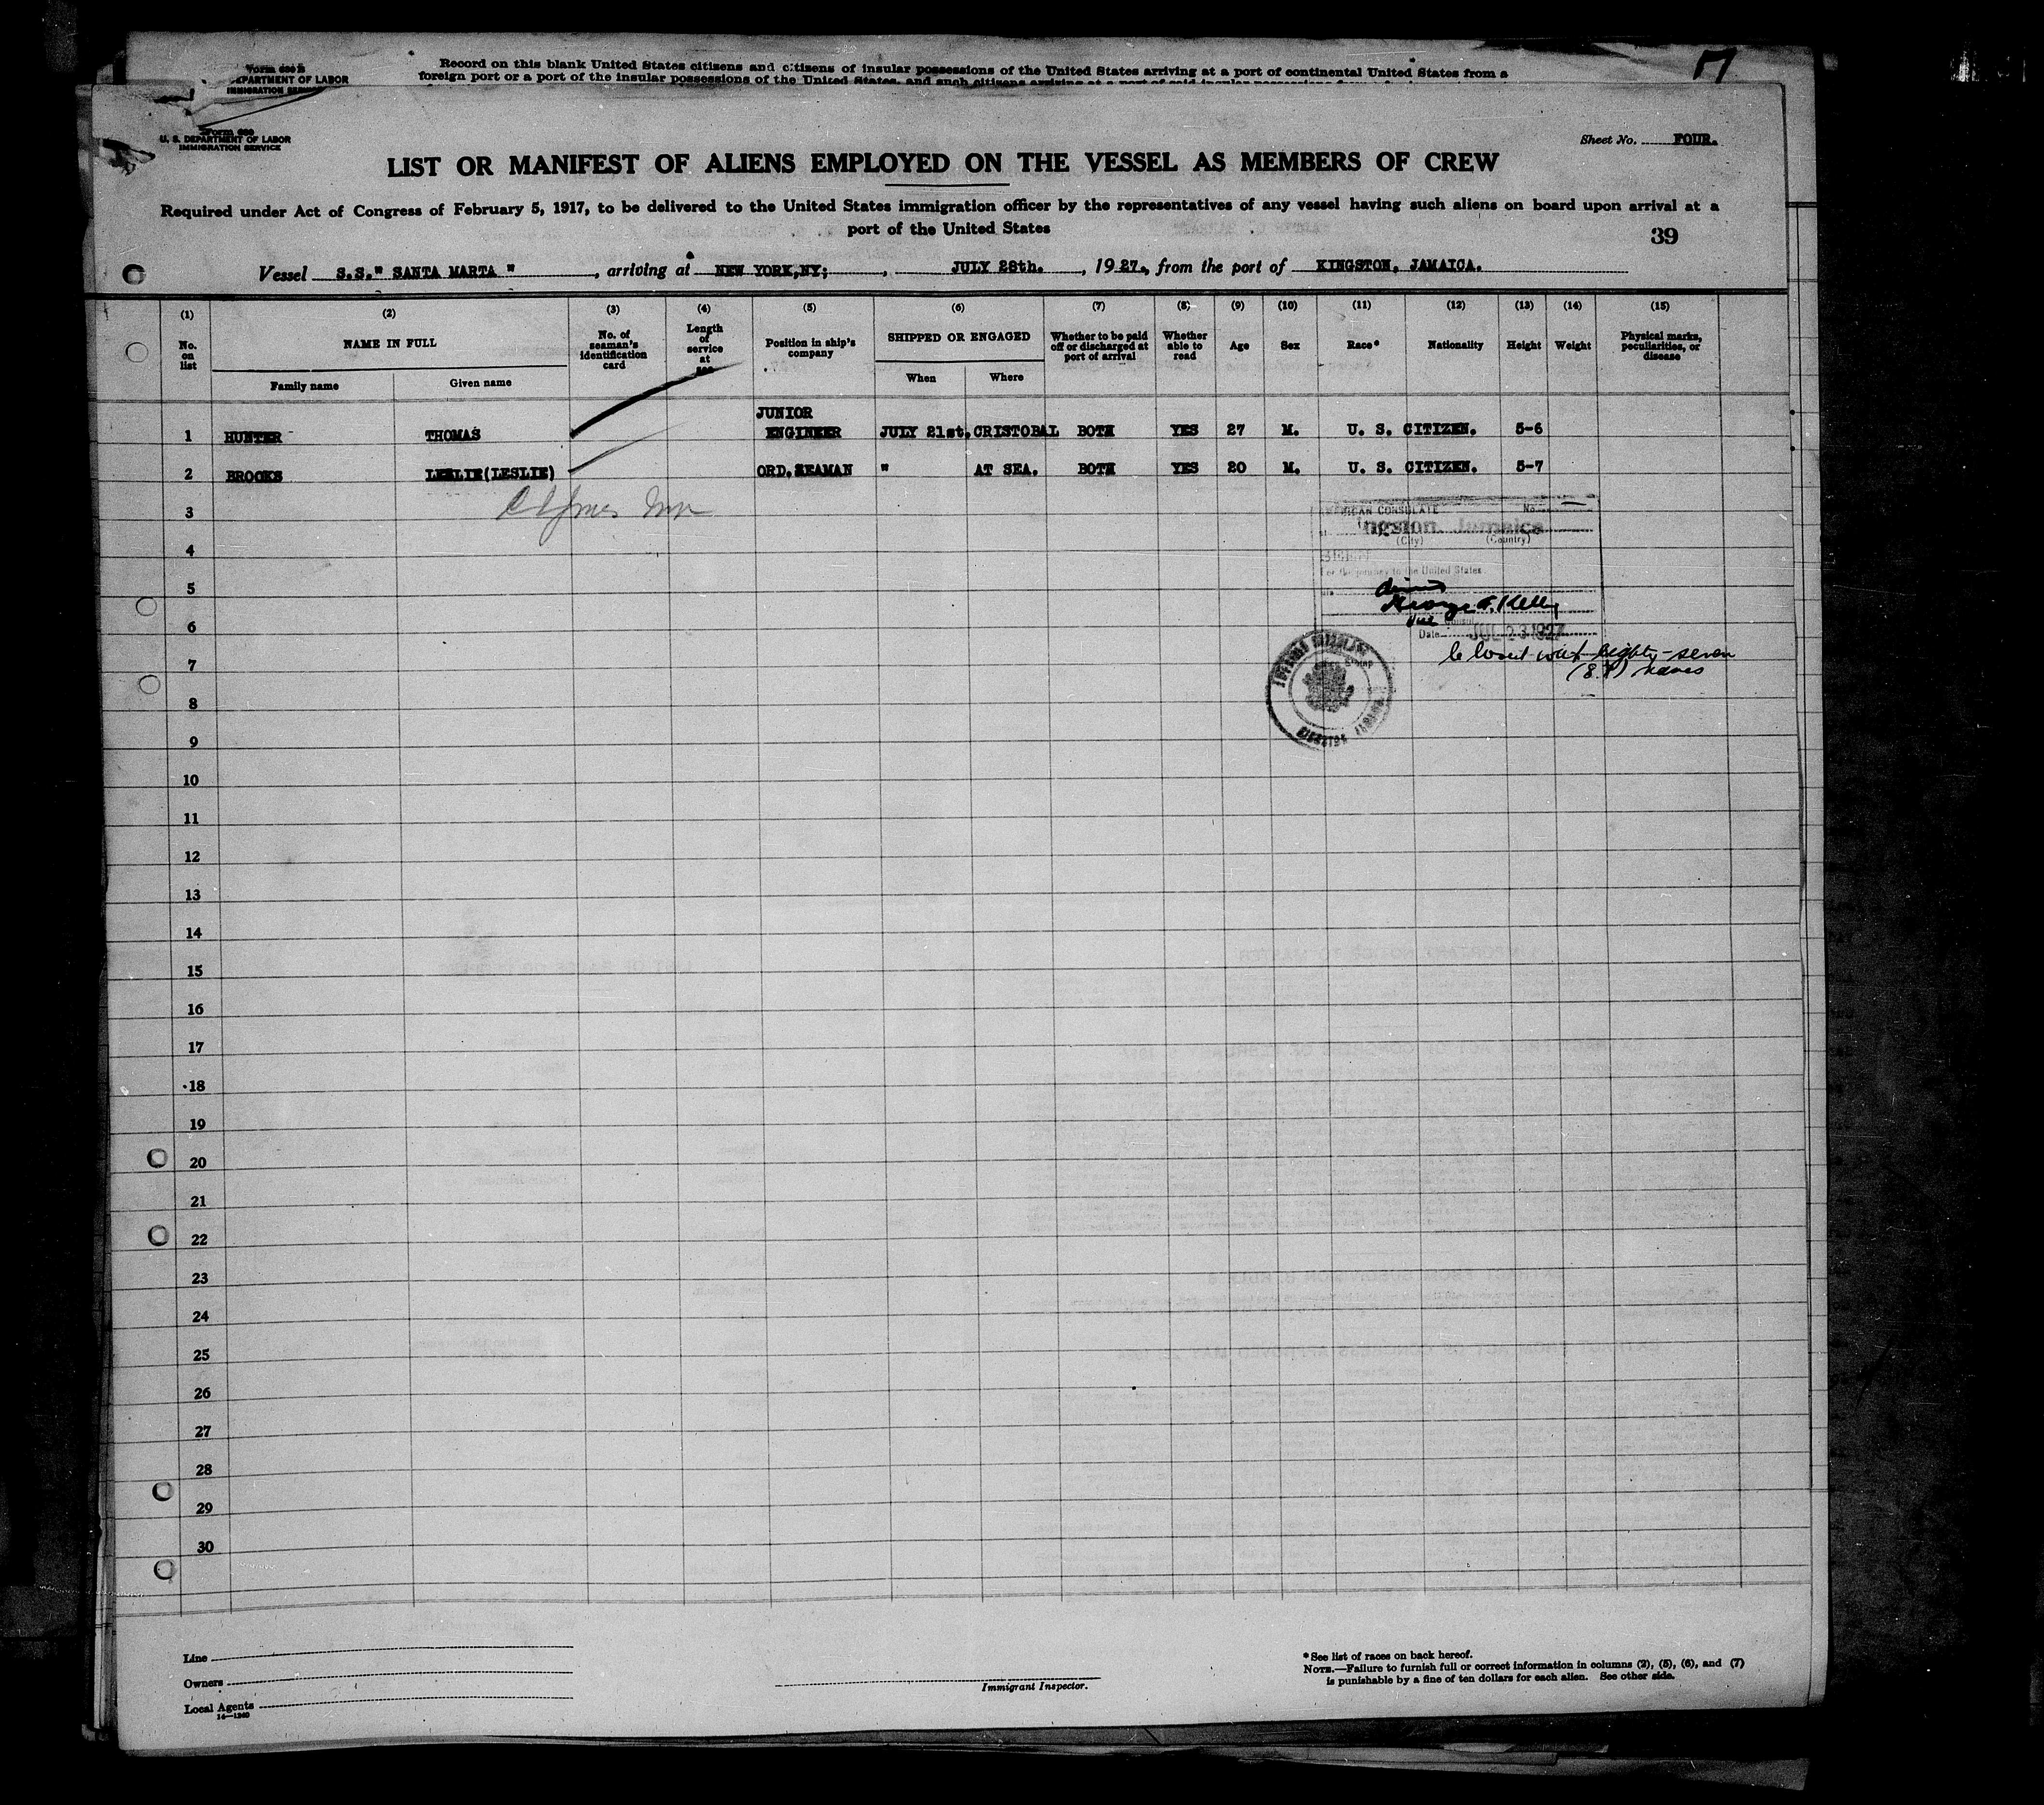 Form 630 B
DEPARTMENT OF LABOR
IMMIGRATION SERVICE
Record on this blank United States citizens and citizens of insular possessions of the United States arriving at a port of continental United States from a
foreign port or a port of the insular possessions of the United States, and such citizens arriving at a port of said insular possessions from
Form 680
U. S. DEPARTMENT OF LABOR
IMMIGRATION SERVICE
Sheet No. FOUR.
LIST OR MANIFEST OF ALIENS EMPLOYED ON THE VESSEL AS MEMBERS OF CREW
Required under Act of Congress of February 5, 1917, to be delivered to the United States immigration officer by the representatives of any vessel having such aliens on board upon arrival at a
port of the United States
39
Vessel S.S." SANTA MARTA ", arriving at NEW YORK,NY; , JULY 28th. , 1927., from the port of KINGSTON, JAMAICA.
(1) (2) (3) (4) (5) (6) (7) (8) (9) (10) (11) (12) (13) (14) (15)
No. on list NAME IN FULL No. of seaman's identification card Length of service at sea Position in ship's company SHIPPED OR ENGAGED Whether to be paid off or discharged at port of arrival Whether able to read Age Sex Race* Nationality Height Weight Physical marks, peculiarities, or disease
Family name Given name When Where
JUNIOR
1 HUNTER THOMAS ENGINEER JULY 21st. CRISTOBAL BOTH YES 27 M. U. S. CITIZEN. 5-6
2 BROOKS LESLIE(LESLIE) ORD.SEAMAN " AT SEA. BOTH YES 20 M. U. S. CITIZEN. 5-7
3
AMERICAN CONSULATE No.
ngston, Jamaica
(City) (Country)
4
For the journey to the United States
5
George F. Kelly
6
Vice Consul
Date JUL 23 1927
7
closed with eighty-seven
(87) names
8
9
10
11
12
13
14
15
16
17
18
19
20
21
22
23
24
25
26
27
28
29
30
Line
Owners
Local Agents
14—1240
Immigrant Inspector.
*See list of races on back hereof.
NOTE.—Failure to furnish full or correct information in columns (2), (5), (6), and (7)
is punishable by a fine of ten dollars for each alien. See other side.